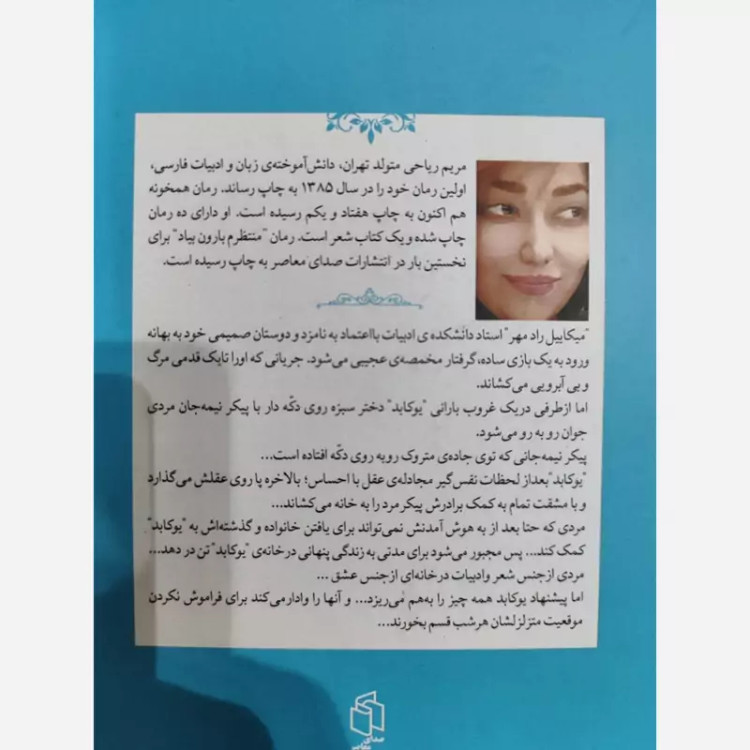 مریم ریاحی متولد تهران، دانش‌آموخته‌ی زبان و ادبیات فارسی،
اولین رمان خود را در سال ۱۳۸۵ به چاپ رساند. رمان همخونه
هم اکنون به چاپ هفتاد و یکم رسیده است. او دارای ده رمان
چاپ شده و یک کتاب شعر است. رمان "منتظرم بارون بیاد" برای
نخستین بار در انتشارات صدای معاصر به چاپ رسیده است.
"میکاییل راد مهر" استاد دانشکده ی ادبیات با اعتماد به نامزد و دوستان صمیمی خود به بهانه
ورود به یک بازی ساده، گرفتار مخمصه‌ی عجیبی می‌شود. جریانی که اورا تایک قدمی مرگ
و بی آبرویی می‌کشاند.
اما ازطرفی دریک غروب بارانی "یوکابد" دختر سبزه روی دکّه دار با پیکر نیمه‌جان مردی
جوان رو به رو می‌شود.
پیکر نیمه‌جانی که توی جاده‌ی متروک روبه روی دکّه افتاده است...
"یوکابد"بعداز لحظات نفس‌گیر مجادله‌ی عقل با احساس؛ بالاخره پا روی عقلش می‌گذارد
و با مشقت تمام به کمک برادرش پیکر مرد را به خانه می‌کشاند...
مردی که حتا بعد از به هوش آمدنش نمی‌تواند برای یافتن خانواده و گذشته‌اش به "یوکابد"
کمک کند... پس مجبور می‌شود برای مدتی به زندگی پنهانی درخانه‌ی "یوکابد" تن در دهد...
مردی ازجنس شعر وادبیات درخانه‌ای ازجنس عشق ...
اما پیشنهاد یوکابد همه چیز را به‌هم می‌ریزد... و آنها را وادارمی‌کند برای فراموش نکردن
موقعیت متزلزلشان هرشب قسم بخورند...
صدای
معاصر